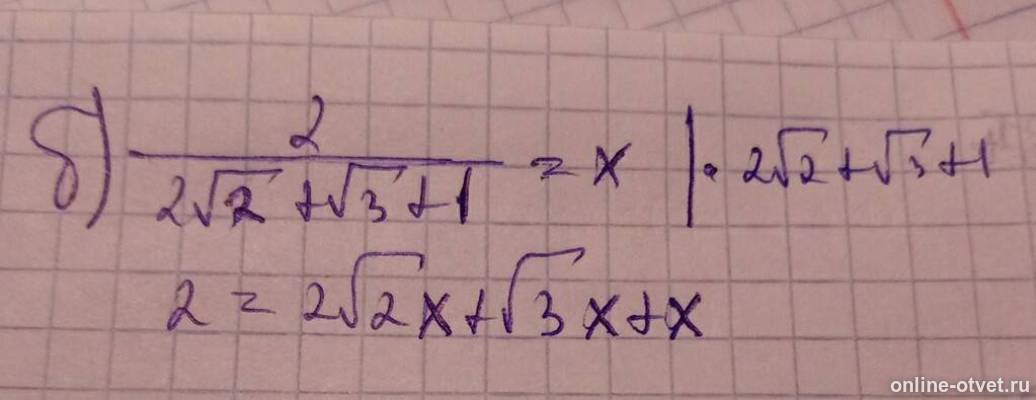 б) 2/(2√2 + √3 + 1) = x | · 2√2 + √3 + 1
2 = 2√2x + √3x + x
online-otvet.ru